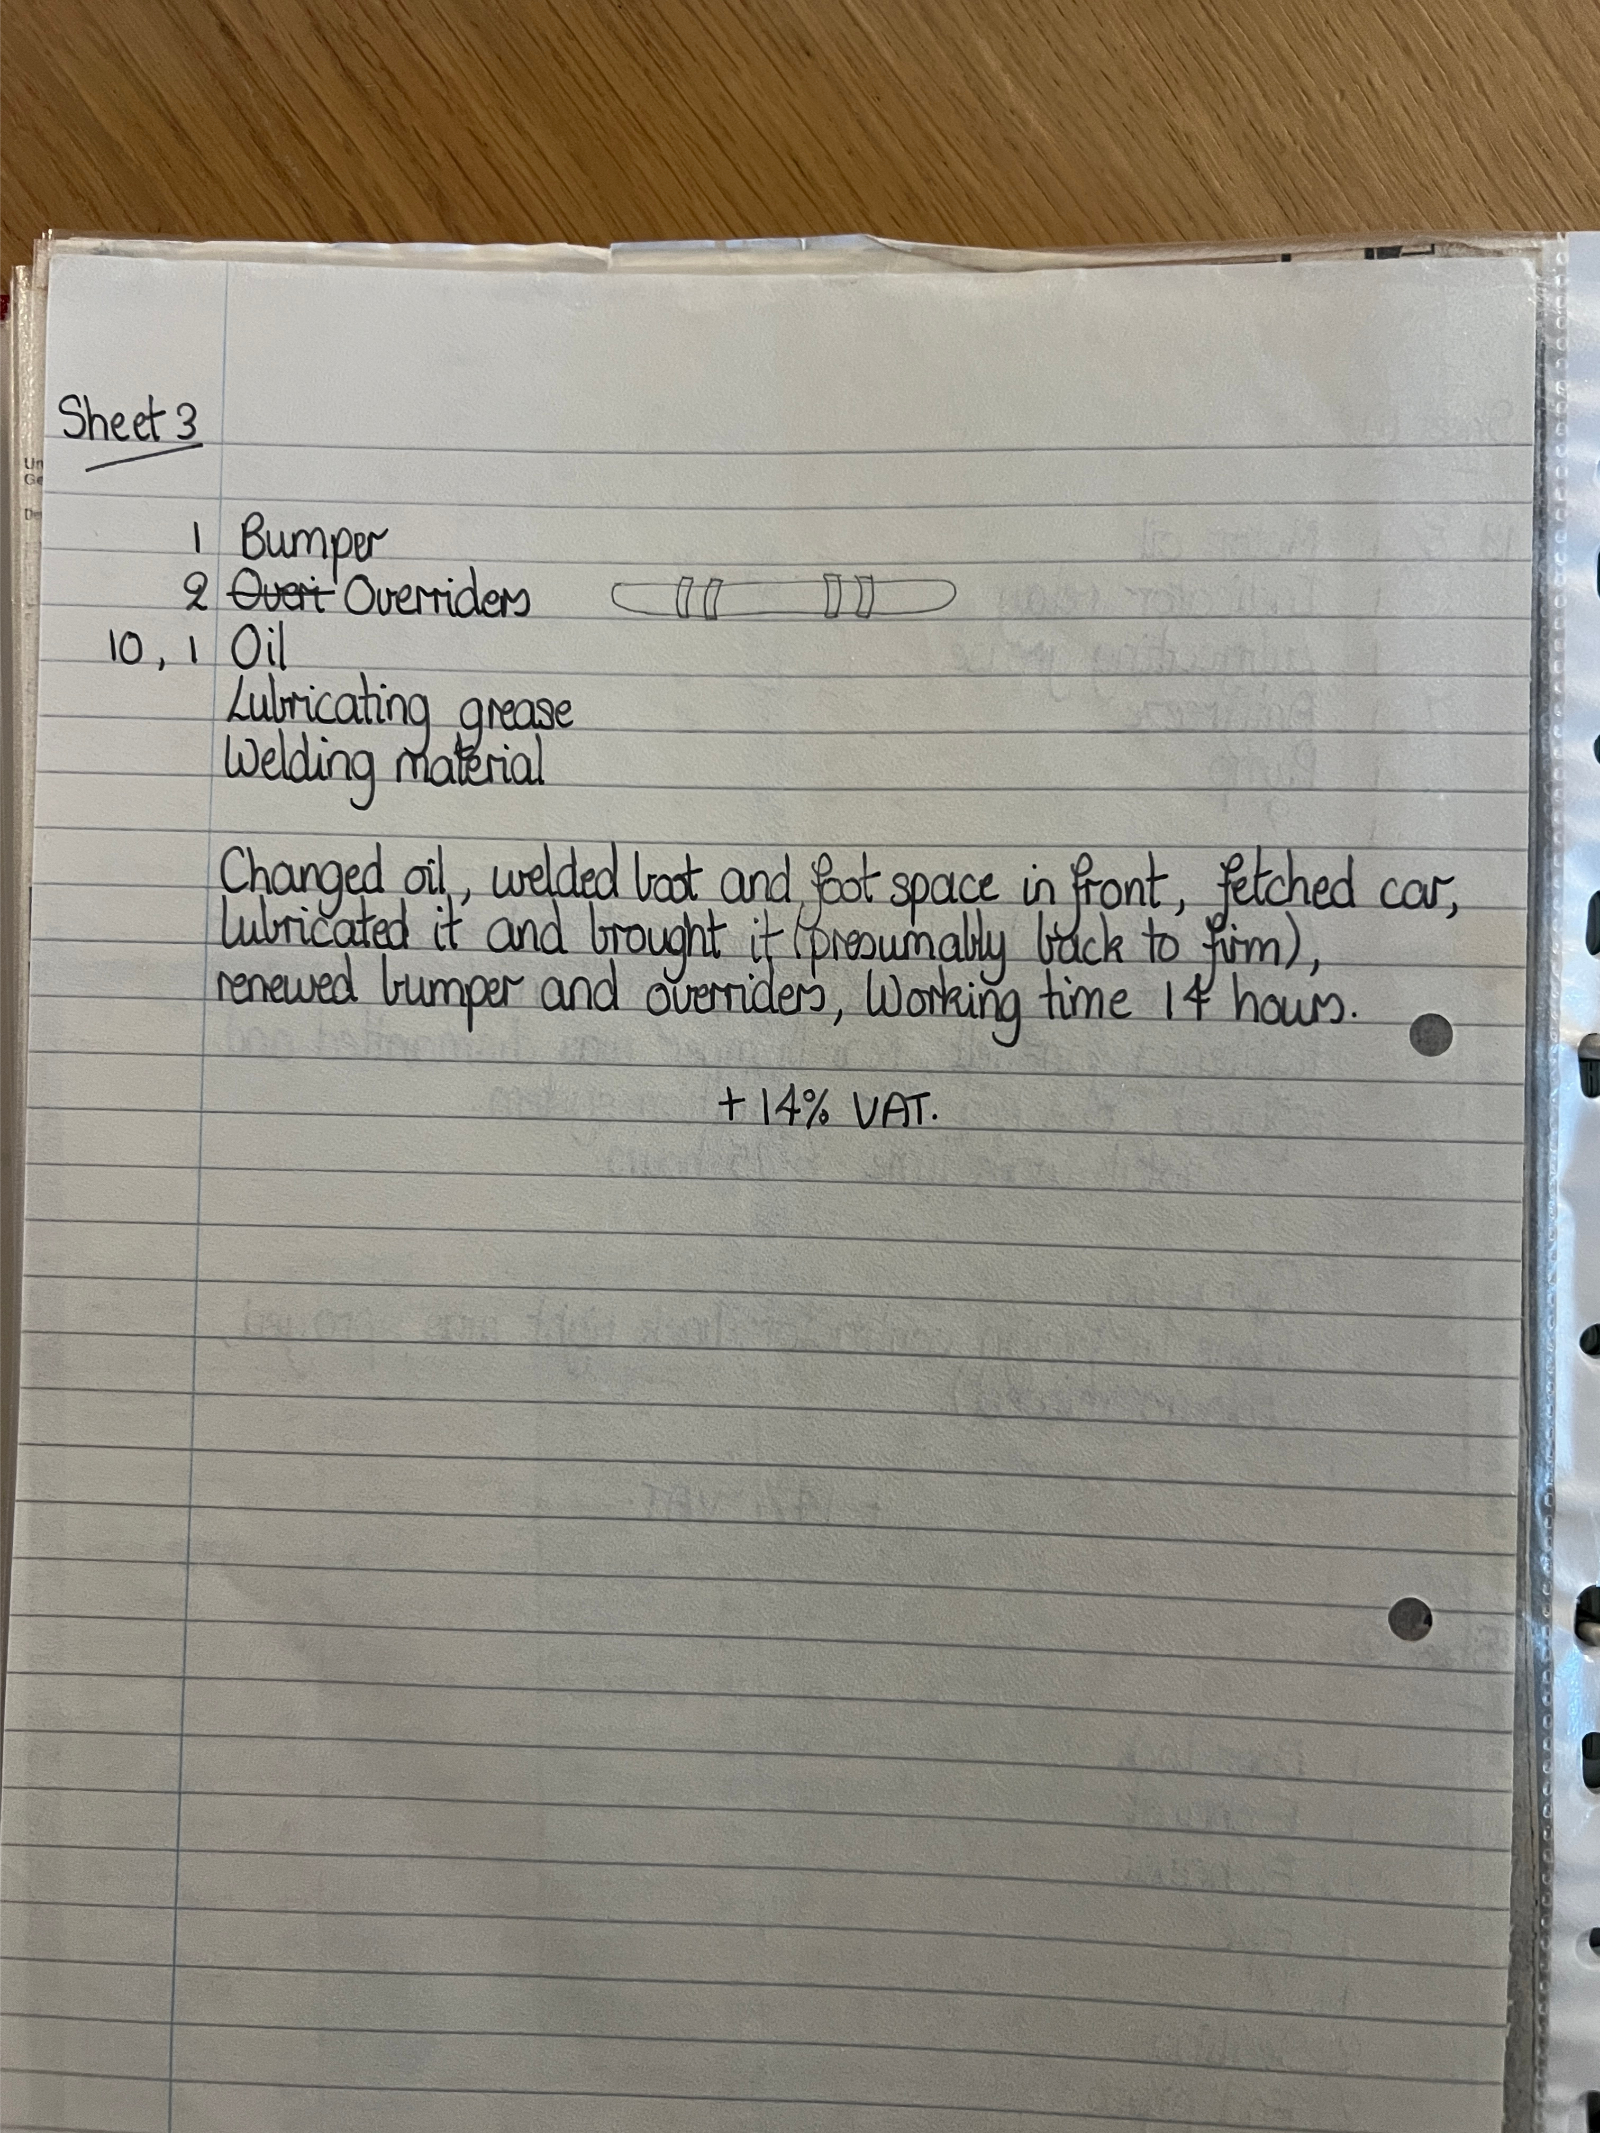 Sheet 3
1 Bumper
2 Overi Overriders
10, 1 Oil
Lubricating grease
Welding material
Changed oil, welded boot and foot space in front, fetched car,
lubricated it and brought it (presumably back to firm),
renewed bumper and overriders, Working time 14 hours.
+ 14% VAT.
Un
Ge
De